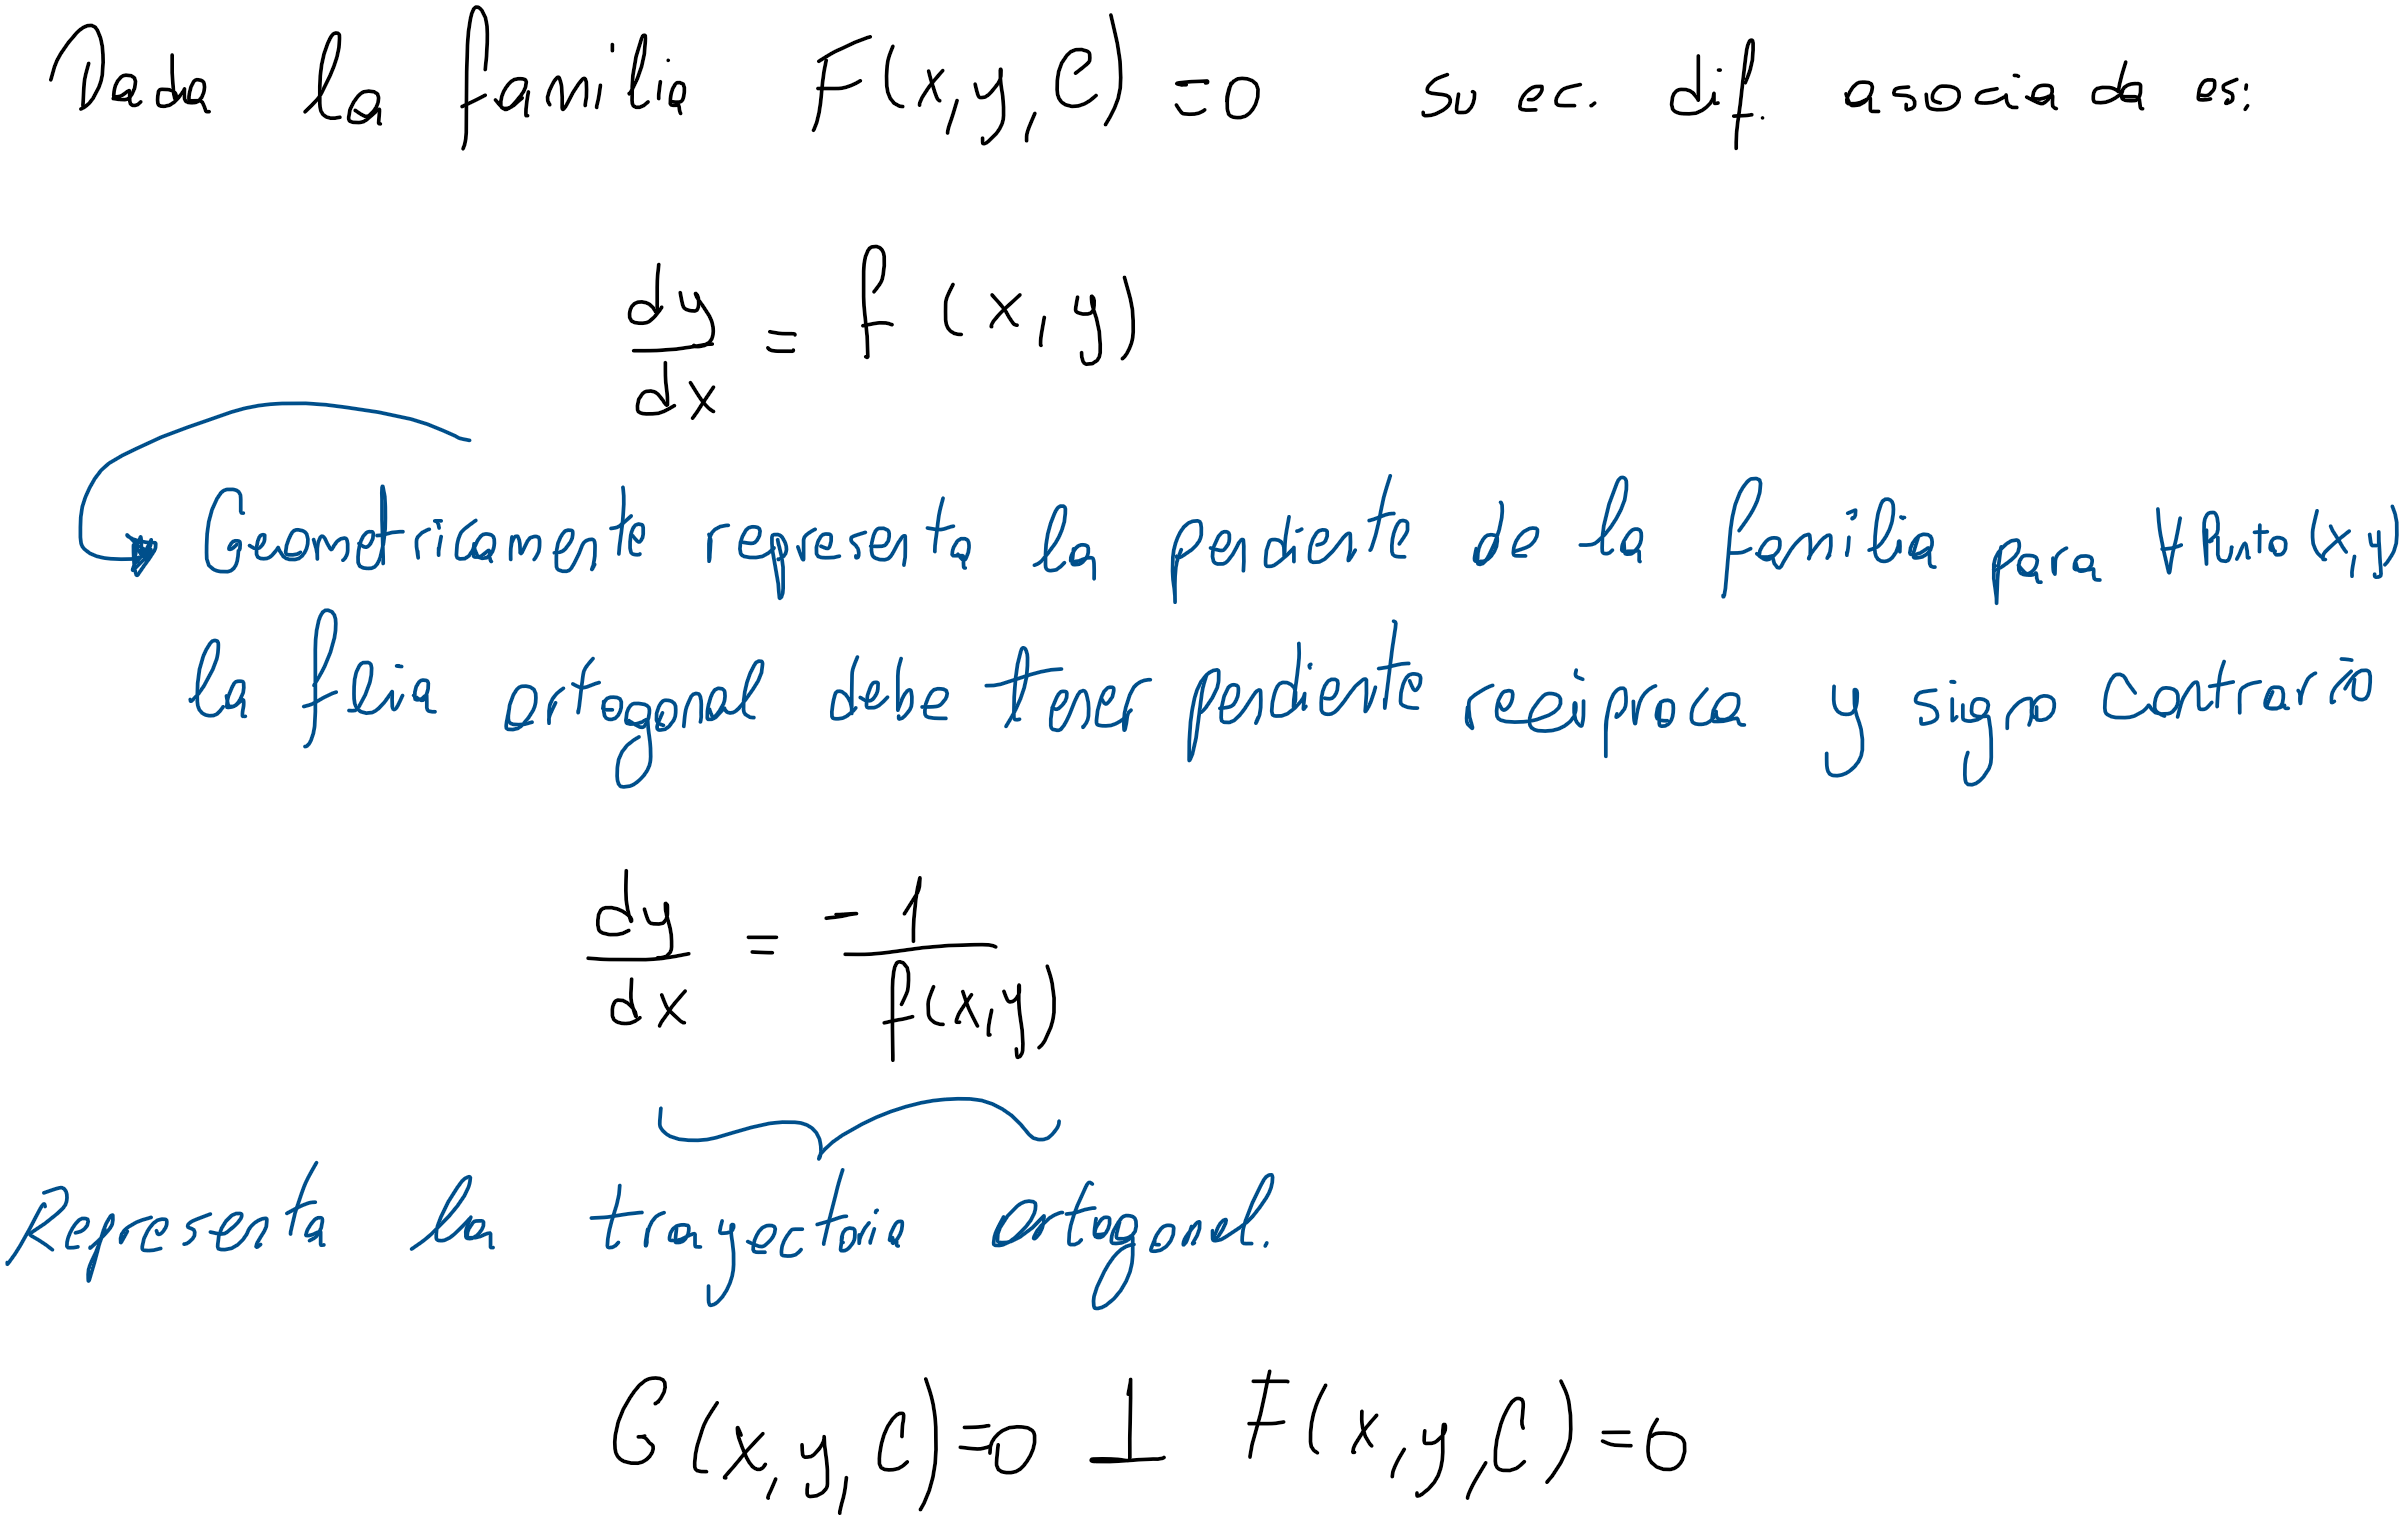 Dada la familia F(x,y,C)=0 su ec. dif. asociada es:
dy/dx = f(x,y)
Geometricamente representa la pendiente de la familia para ∀ Punto (x,y)
la flia ortogonal debe tener pendiente reciproca y signo contrario
dy/dx = -1/f(x,y)
Representa la trayectoria ortogonal.
G(x,y,C)=0 ⊥ F(x,y,C)=0